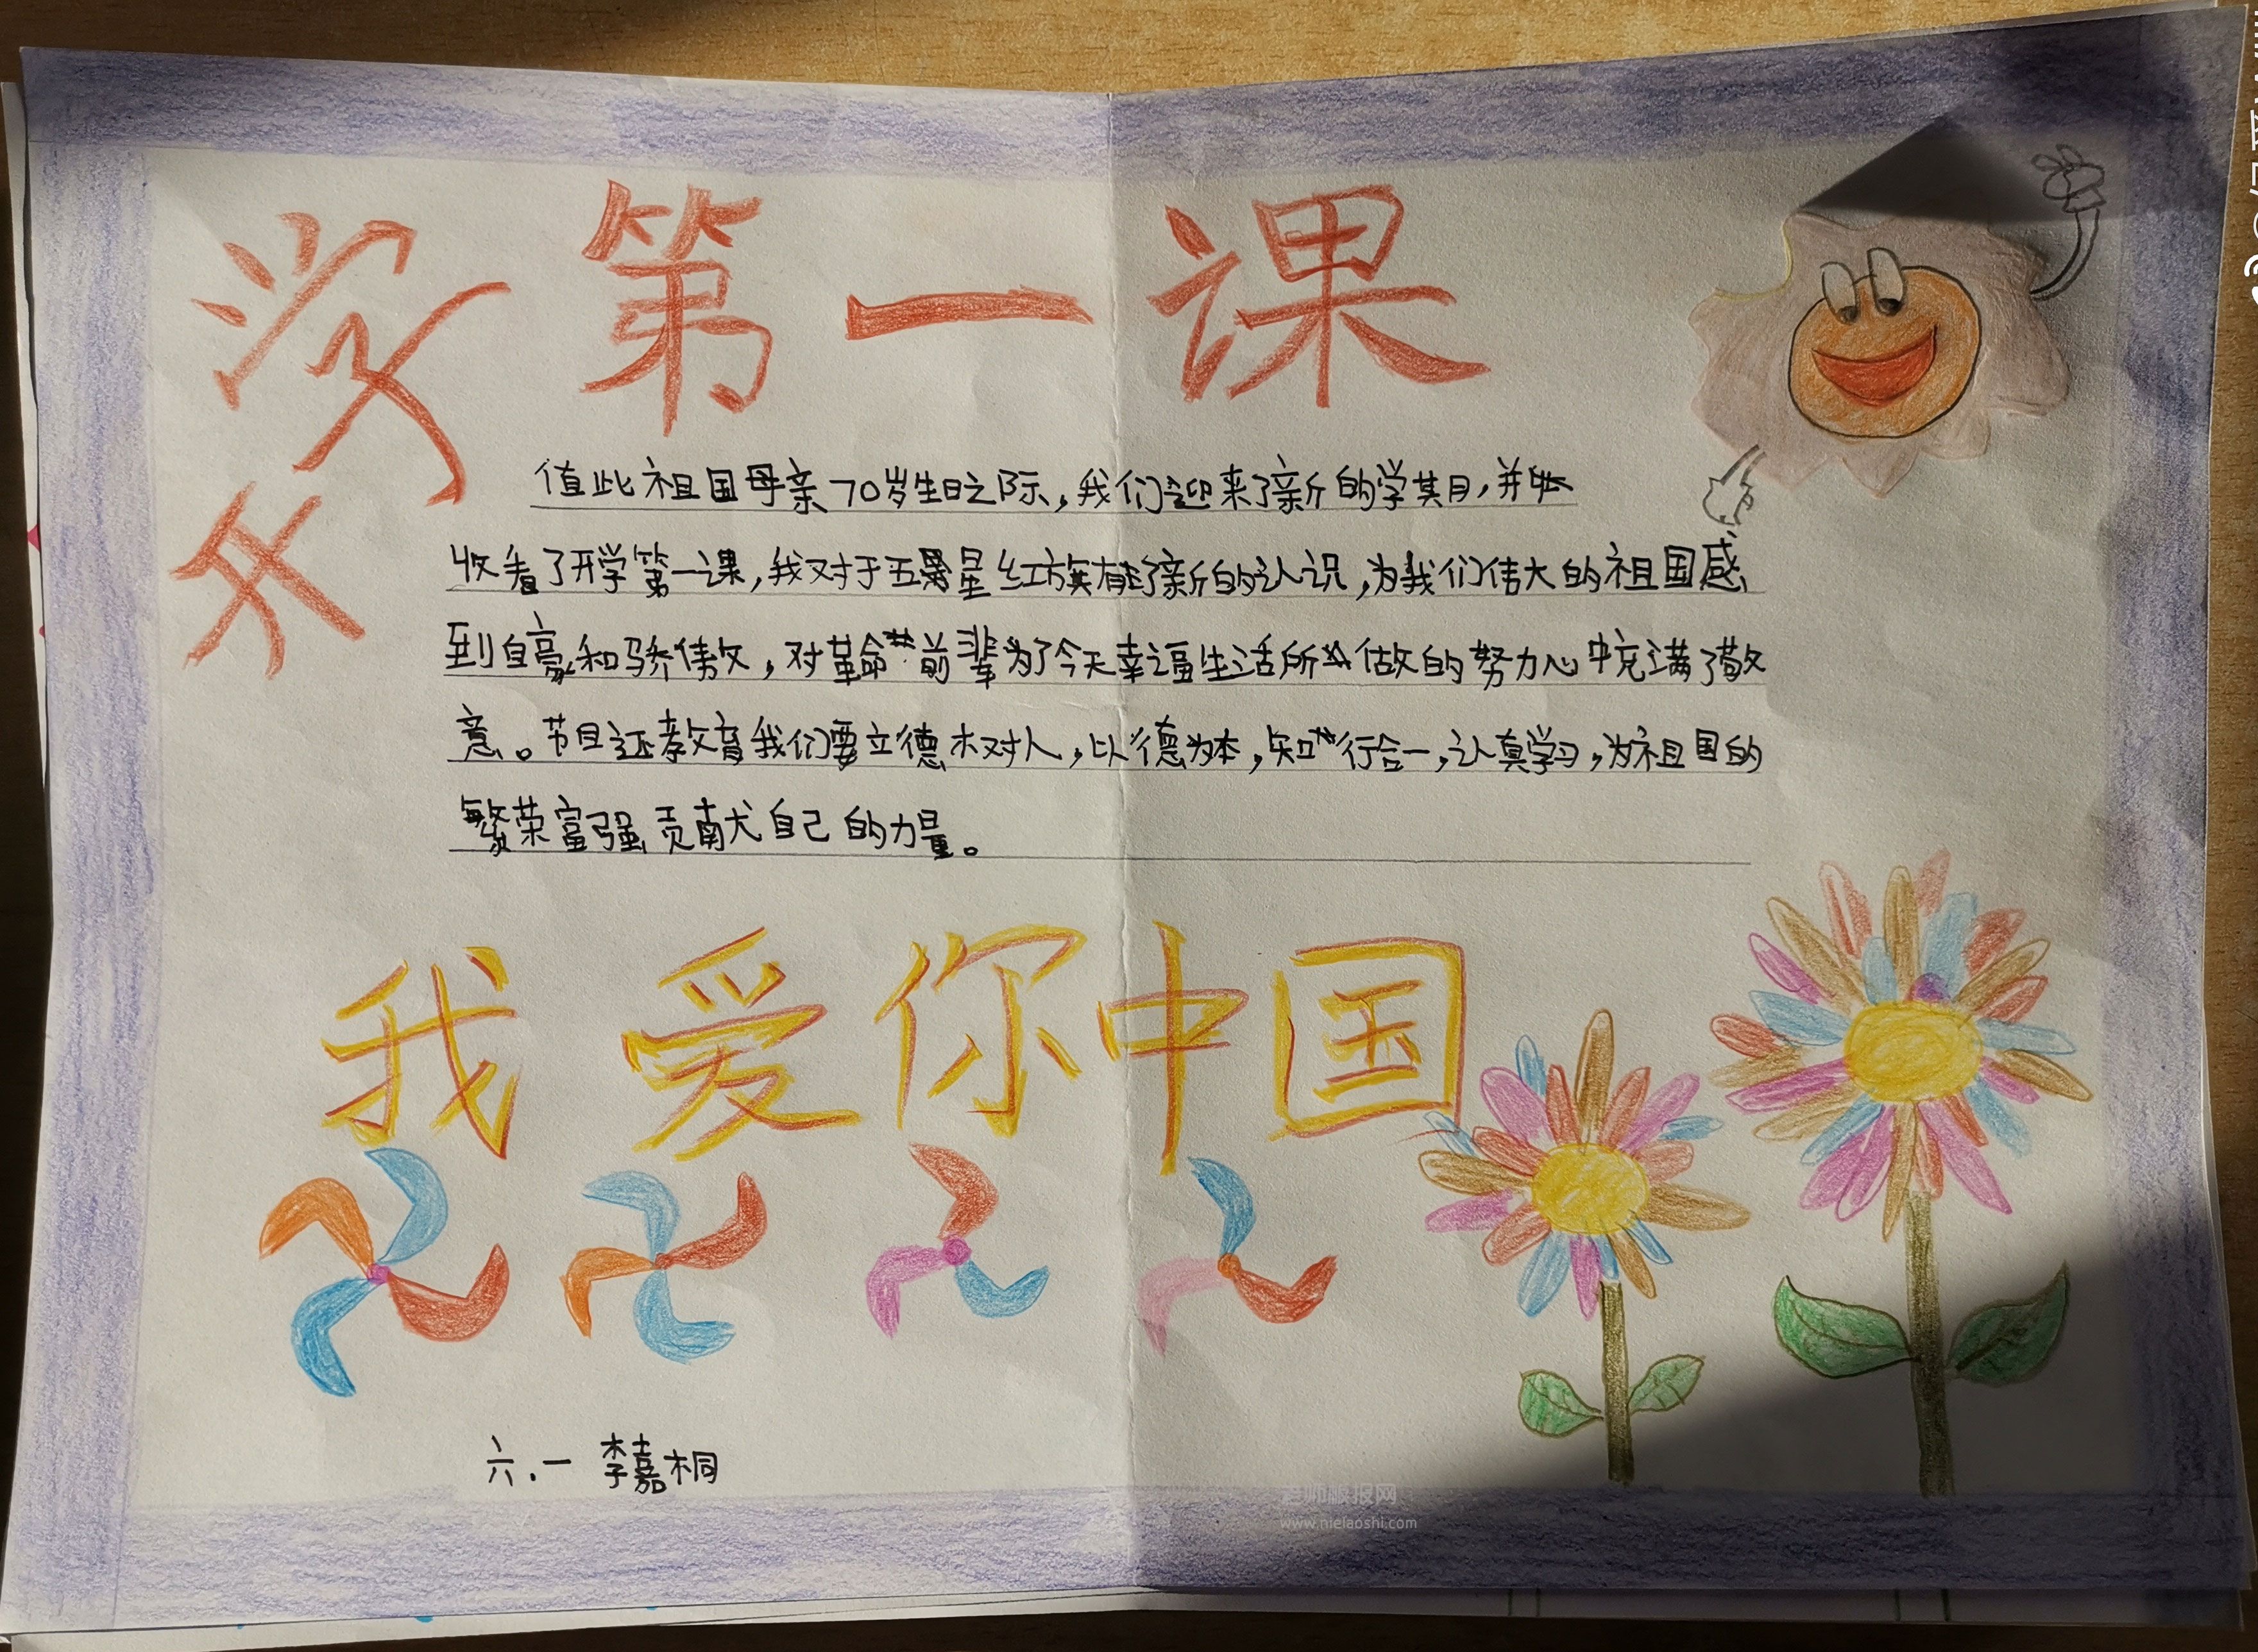 开学第一课
值此祖国母亲70岁生日之际,我们迎来了新的学期,并
收看了开学第一课,我对于五星红旗有了新的认识,为我们伟大的祖国感
到自豪和骄傲,对革命前辈为了今天幸福生活所做的努力心中充满了敬
意。节目还教育我们要立德树人,以德为本,知行合一,认真学习,为祖国的
繁荣富强贡献自己的力量。
我爱你中国
六.一 李嘉桐
老师板报网
www.nielaoshi.com